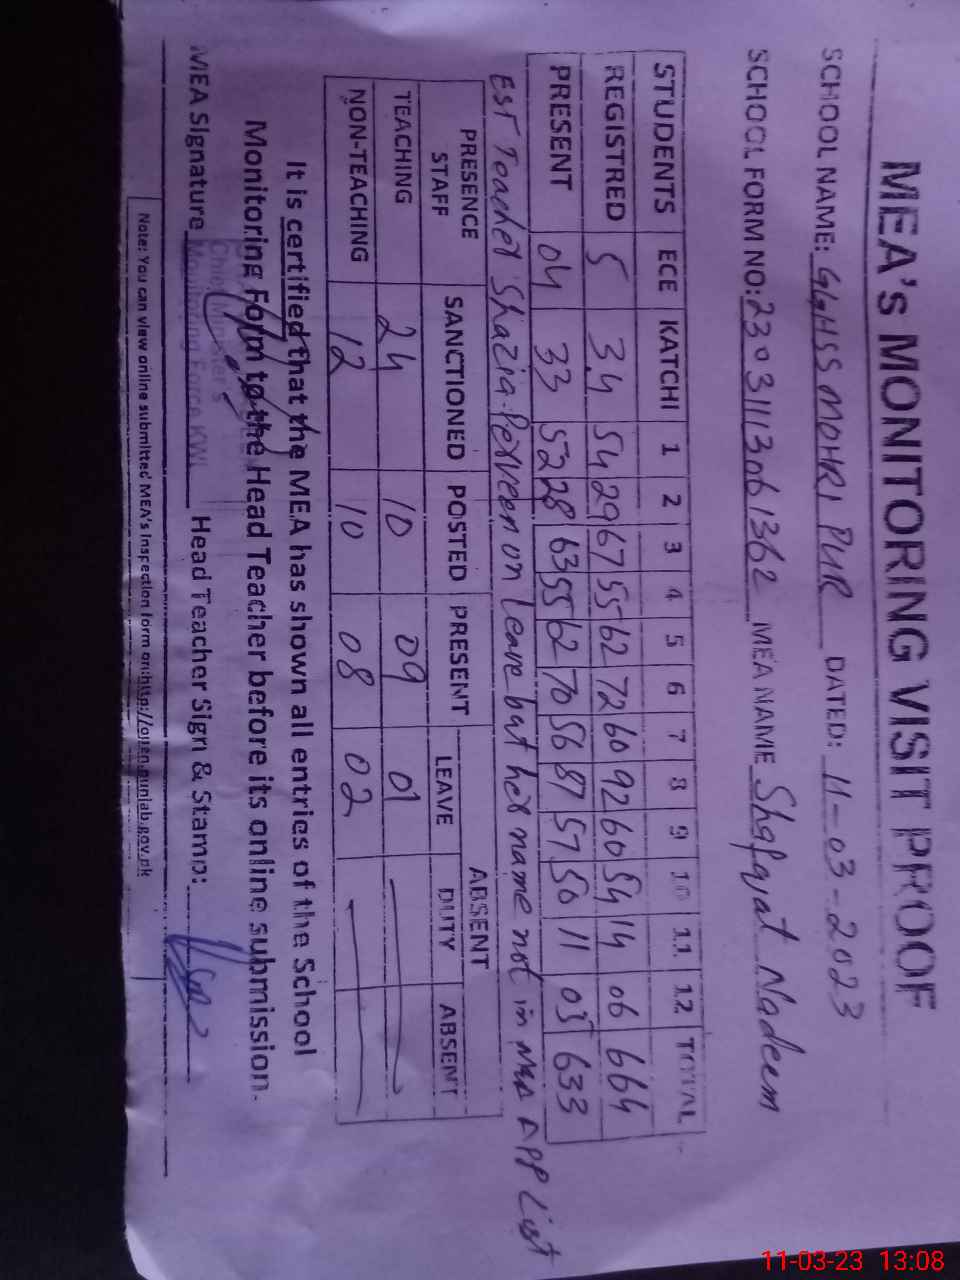 MEA's MONITORING VISIT PROOF
SCHOOL NAME: GGHSS MOHRI PUR DATED: 11-03-2023
SCHOOL FORM NO: 23031113061362 MEA NAME Shafqat Nadeem
STUDENTS ECE KATCHI 1 2 3 4 5 6 7 8 9 10 11 12 TOTAL
REGISTRED 5 34 54 29 67 55 62 72 60 92 60 54 14 06 664
PRESENT 04 33 52 28 63 55 62 70 56 87 57 50 11 05 633
EST Teacher Shazia Perveen on leave but her name not in App List
PRESENCE STAFF SANCTIONED POSTED PRESENT ABSENT
LEAVE DUTY ABSENT
TEACHING 24 10 09 01
NON-TEACHING 12 10 08 02
It is certified that the MEA has shown all entries of the School
Monitoring Form to the Head Teacher before its online submission.
Chief Minister's
Monitoring Force KWL
MEA Signature Head Teacher Sign & Stamp:
Note: You can view online submitted MEA's Inspection form on: http://open.punjab.gov.pk
11-03-23 13:08